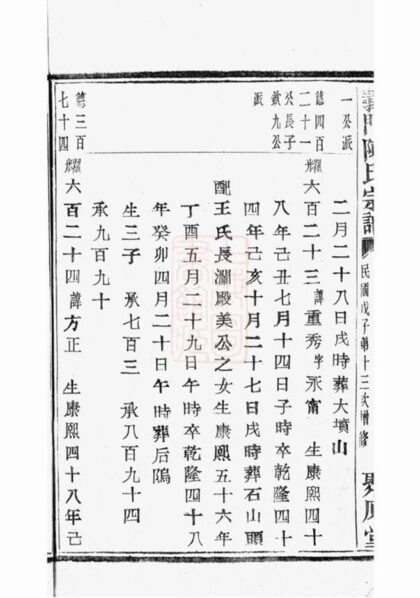 門陳氏宗譜 民國戊子第十三次增修
一公派
二月二十八日戌時葬大墳山
德四百
二十一
公長子
欽九公
派
耀六百二十三 諱重秀字永甯 生康熙四十
八年己丑七月十四日子時卒乾隆四十
四年己亥十月二十七日戌時葬石山頭
配王氏長瀾殿美公之女生康熙五十六年
丁酉五月二十九日午時卒乾隆四十八
年癸卯四月二十日午時葬后隖
生三子 承七百三 承八百九十四
承九百九十
德三百
七十四
耀六百二十四諱方正 生康熙四十八年己